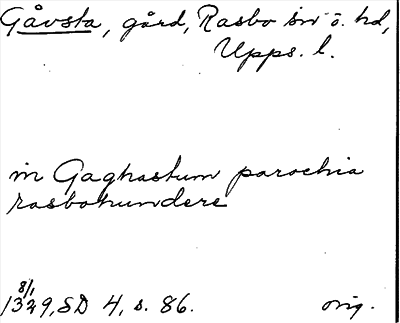 Gåvsta, gård, Rasbo sn ö. hd,
Upps. l.
in Gaghastum parochia
rasbohundere
8/1
1329, SD 4, s. 86. orig.